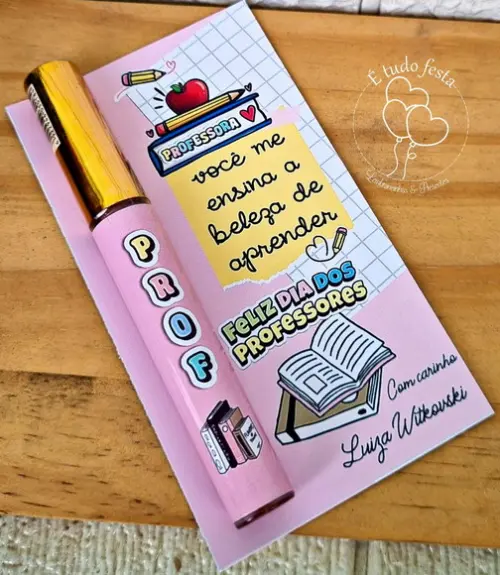 É tudo festa
PROFESSORA
você me
ensina a
beleza de
aprender
FELIZ DIA DOS
PROFESSORES
Com carinho
Luiza Witkovski
PROF